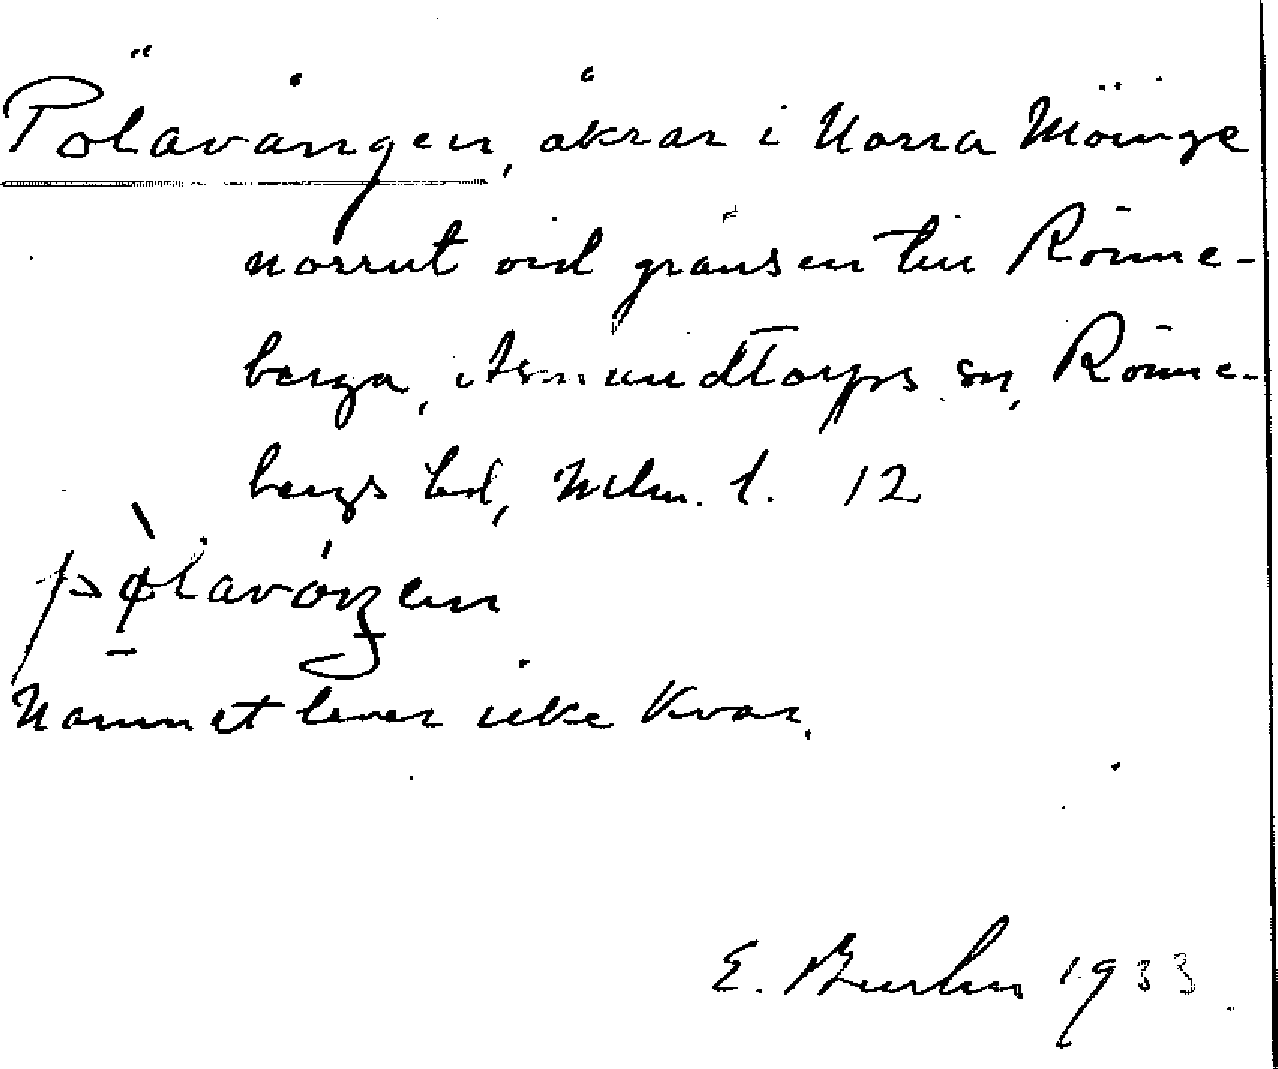 Pölavången, åkrar i Norra Möinge
norrut vid gränsen till Rönne-
berga, Asmundtorps sn, Rönne-
bergs hd, Mlm. l. 12
pø̀lavóŋen
Namnet lever icke kvar.
E. 1933